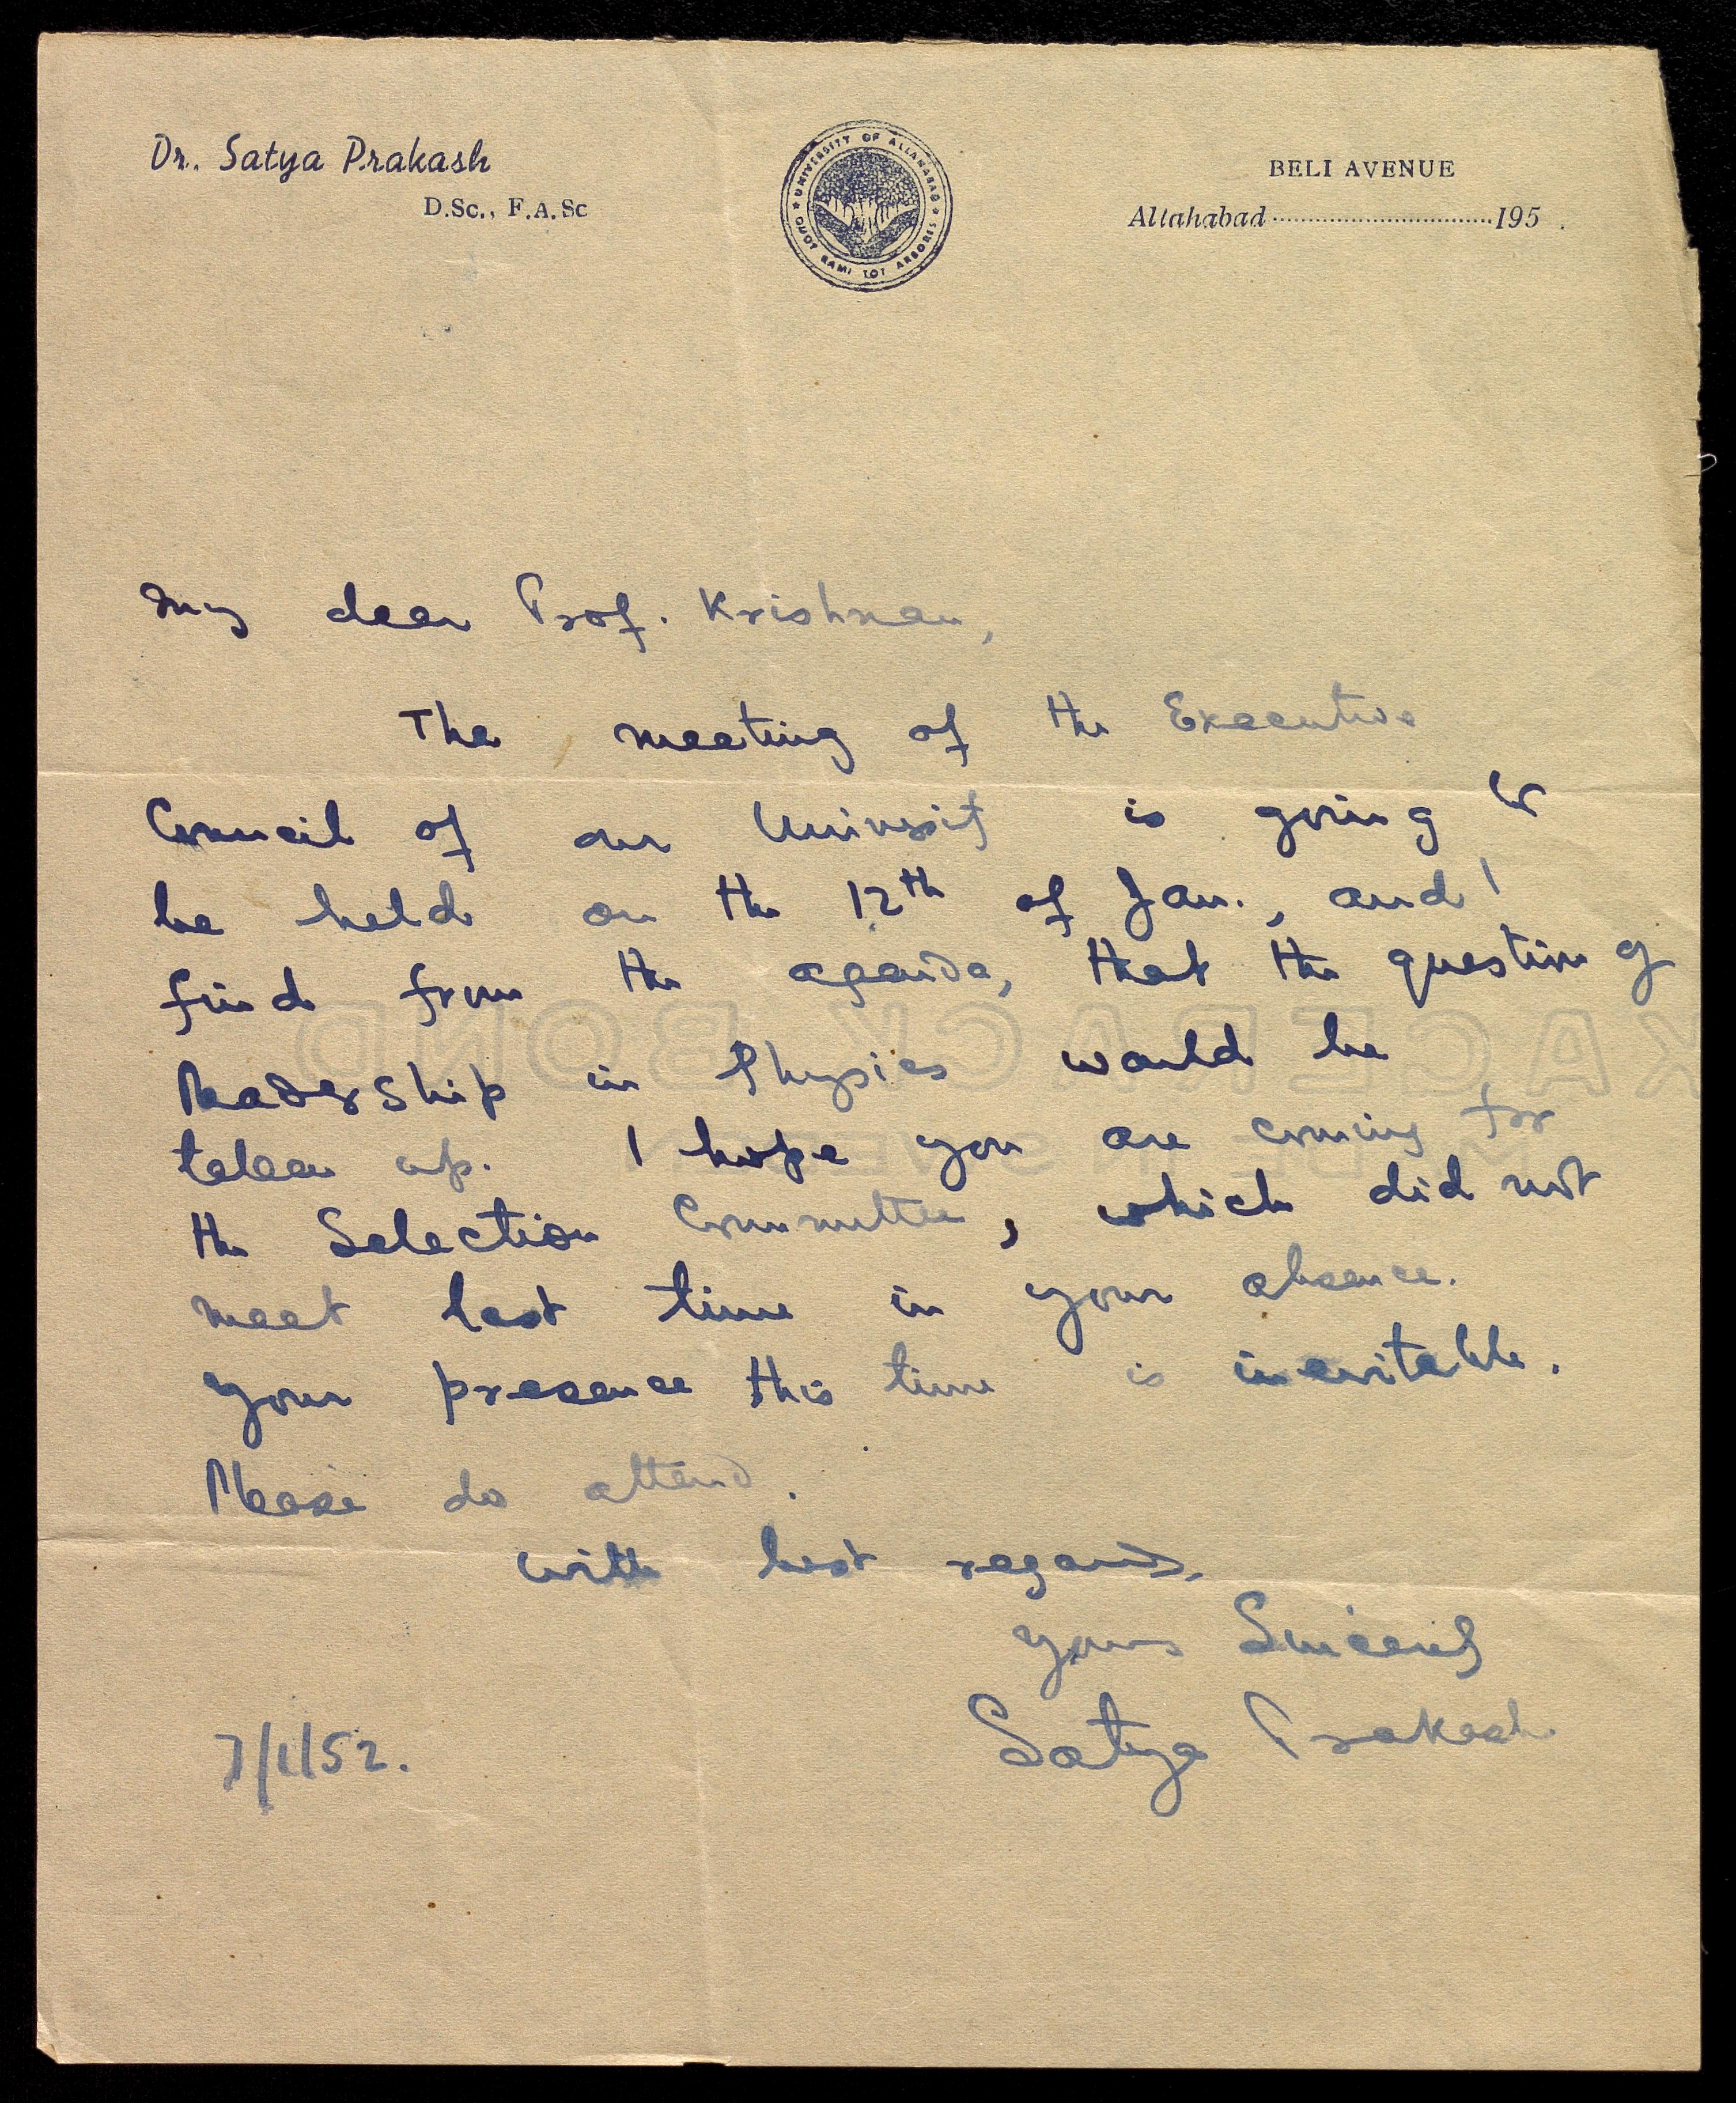 Dr. Satya Prakash
D.Sc., F.A.Sc
UNIVERSITY OF ALLAHABAD
QUOT RAMI TOT ARBORES
BELI AVENUE
Allahabad 195 .
My dear Prof. Krishnan,
The meeting of the Executive
Council of our University is going to
be held on the 12th of Jan., and I
find from the agenda, that the question of
Readership in Physics would be
taken up. I hope you are coming for
the Selection Committee, which did not
meet last time in your absence.
Your presence this time is inevitable.
Please do attend.
with best regards,
Yours Sincerely
Satya Prakash
7/1/52.